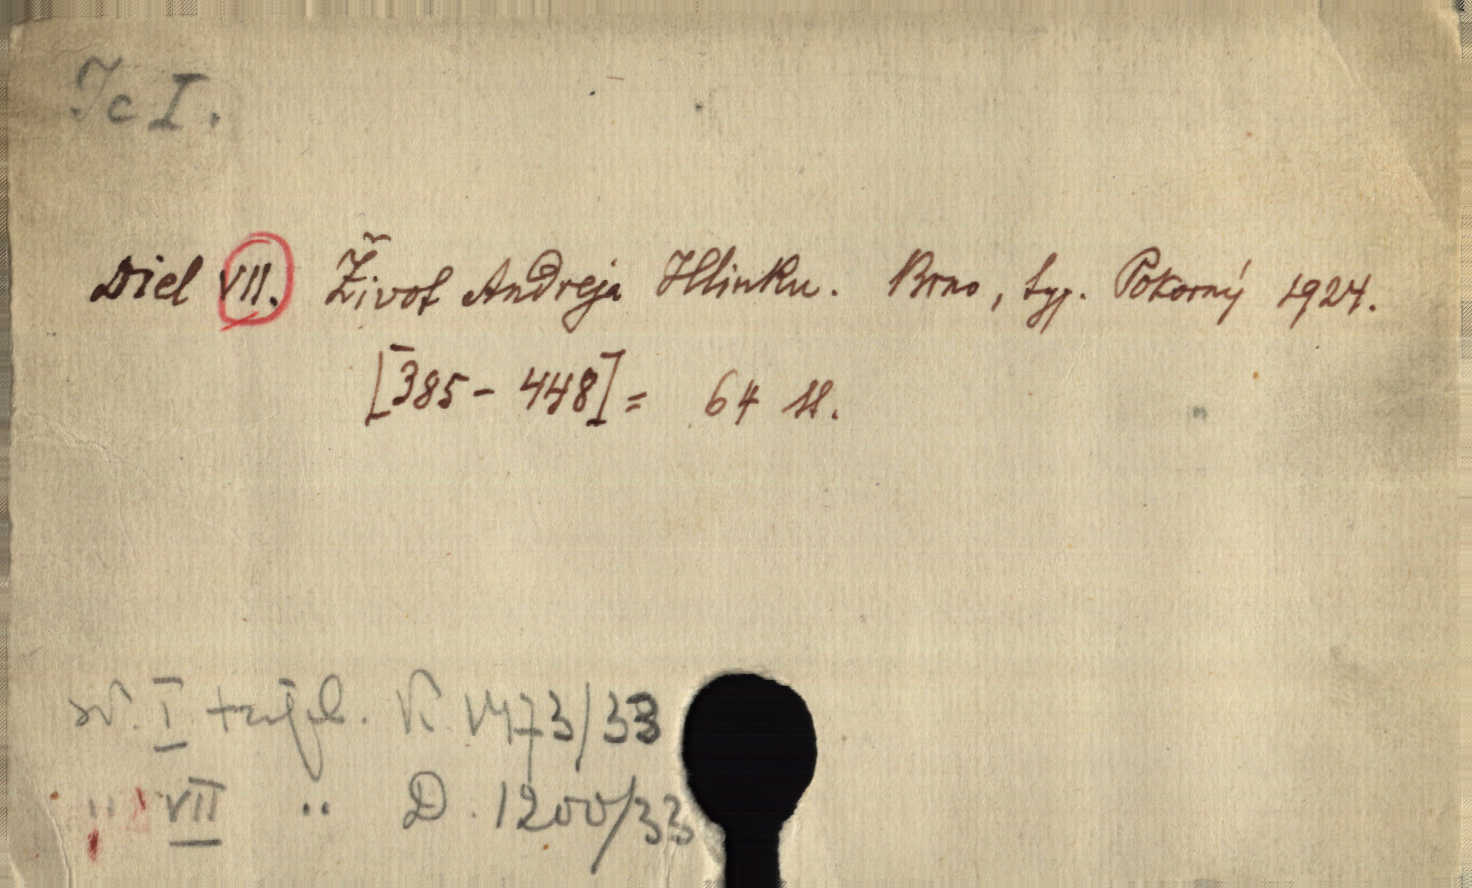 Ic I.
Diel VII. Život Andreja Hlinku. Brno, typ. Pokorný 1924.
[385-448] = 64 st.
sv. I K. 1473/33
" VII " D. 1200/33